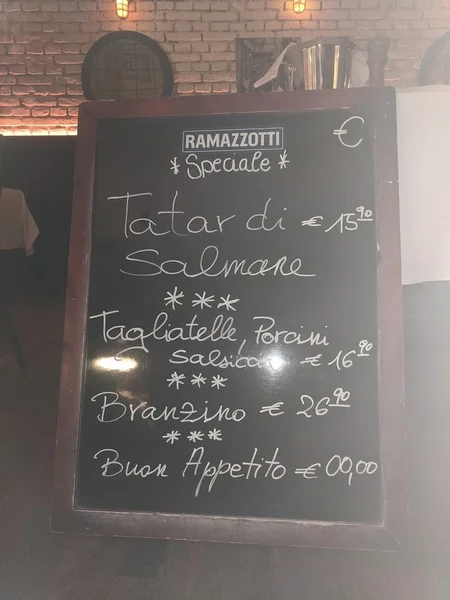 RAMAZZOTTI
€
* Speciale *
Tatar di € 15,90
Salmane
* * *
Tagliatelle, Porcini
Salsiccia € 16,90
* * *
Branzino € 26,90
* * *
Buon Appetito € 00,00